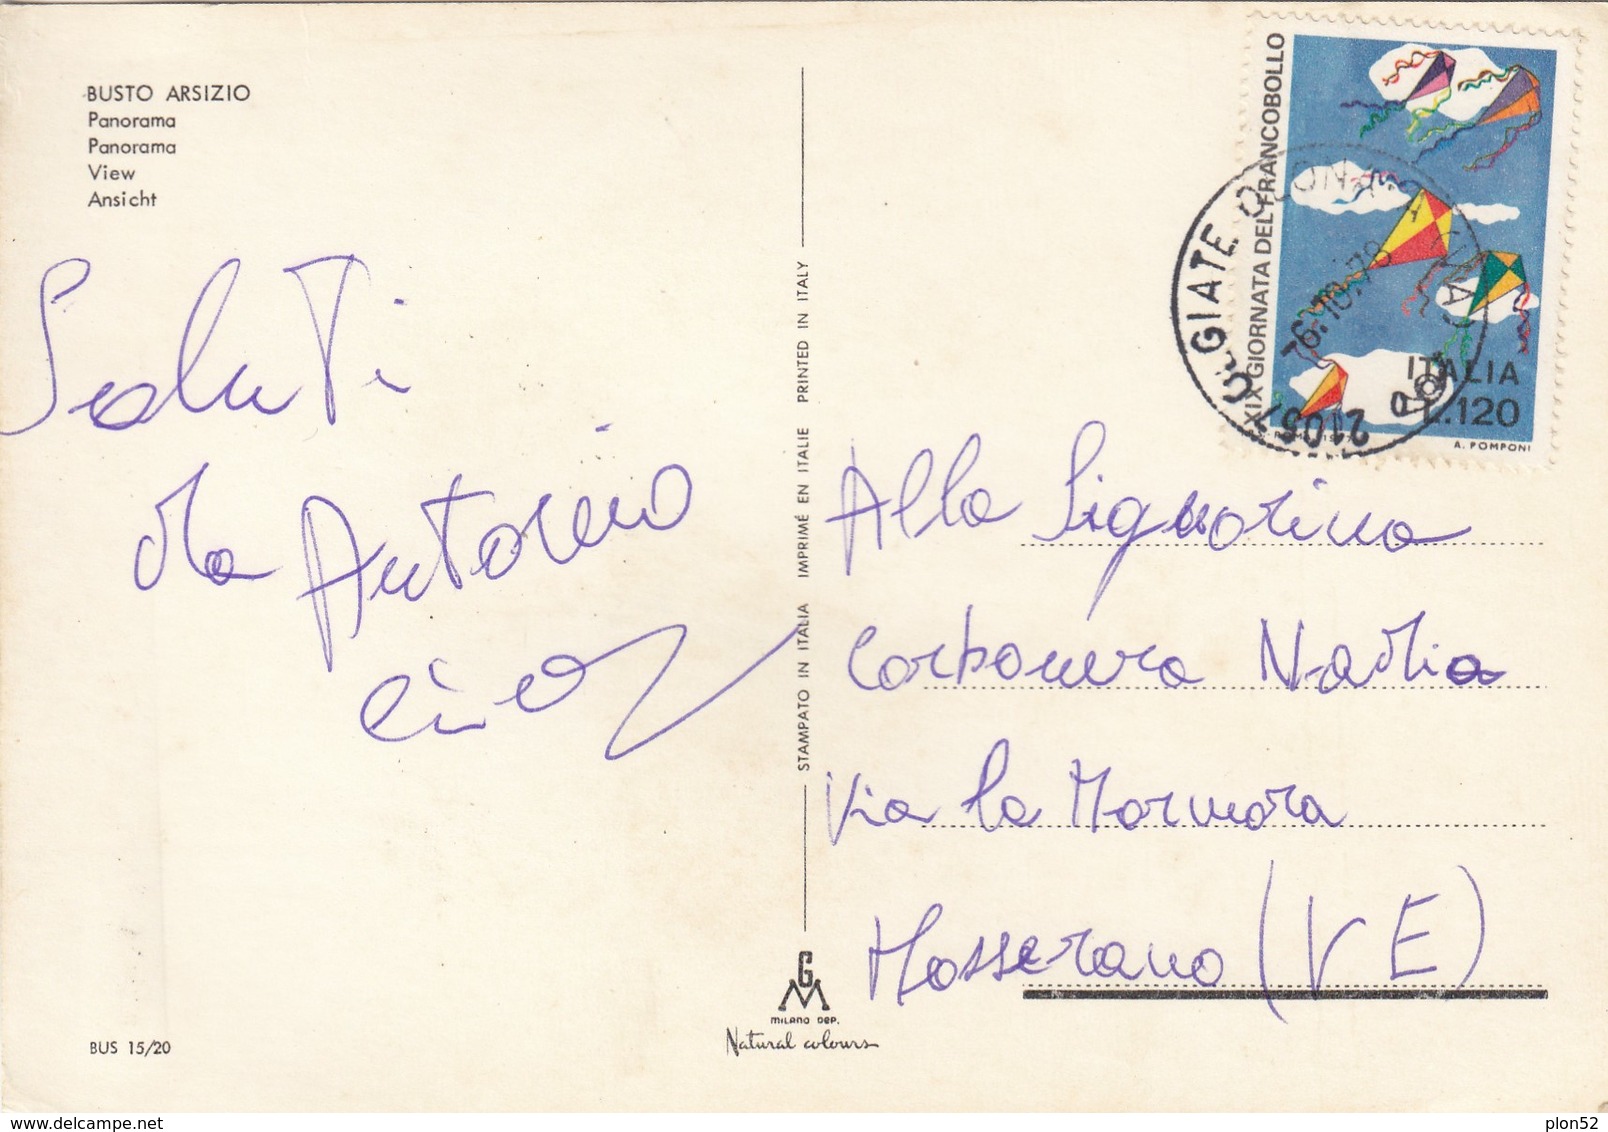 BUSTO ARSIZIO
Panorama
Panorama
View
Ansicht
Saluti
da Antonio
ciao
BUS 15/20
STAMPATO IN ITALIA IMPRIMÉ EN ITALIE PRINTED IN ITALY
GM
MILANO DEP.
Natural colours
XIX GIORNATA DEL FRANCOBOLLO
ITALIA
L.120
A. POMPONI
OLGIATE OLONA (VA)
-6.10.78
21057
Alla Signorina
Carbonera Nadia
Via la Marmora
Mosserano (VE)
plon52